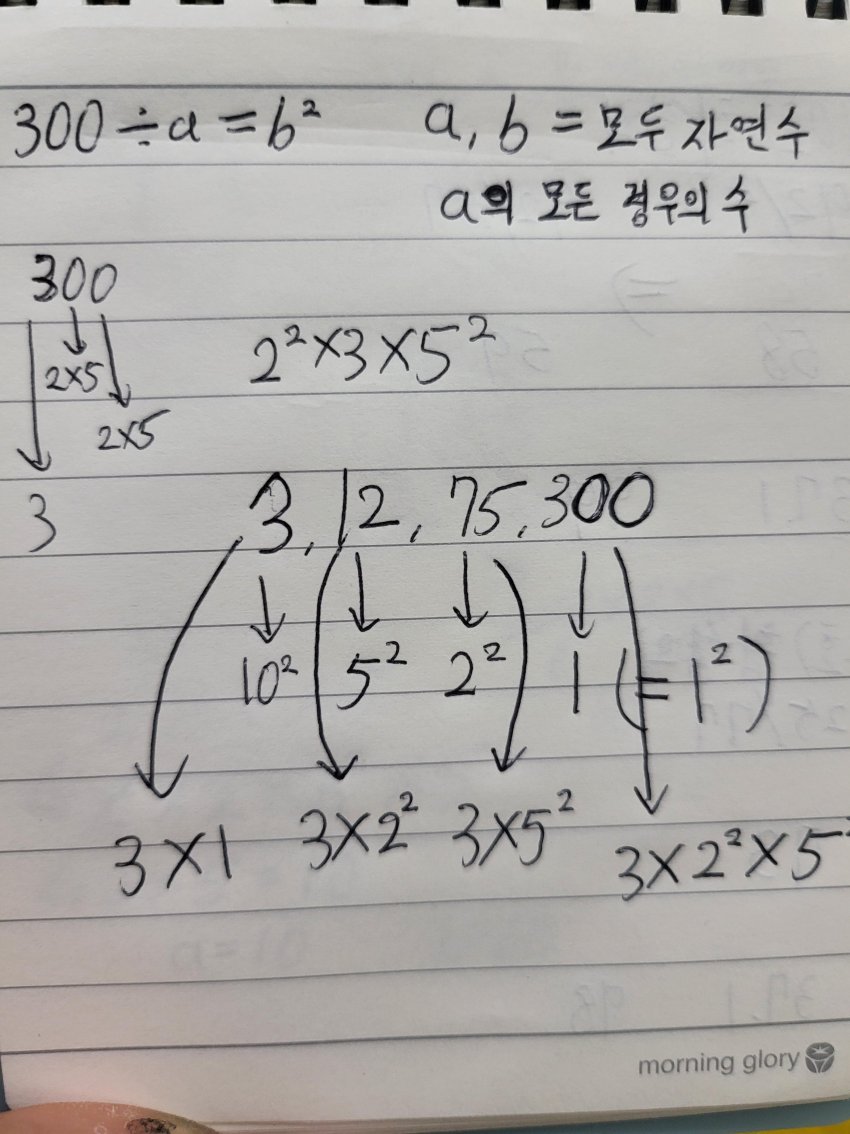 300÷a=b² a, b = 모두 자연수
a의 모든 경우의 수
300
2×5
2×5
3
2²×3×5²
3, 12, 75, 300
10² 5² 2² 1 (=1²)
3×1 3×2² 3×5² 3×2²×5²
morning glory